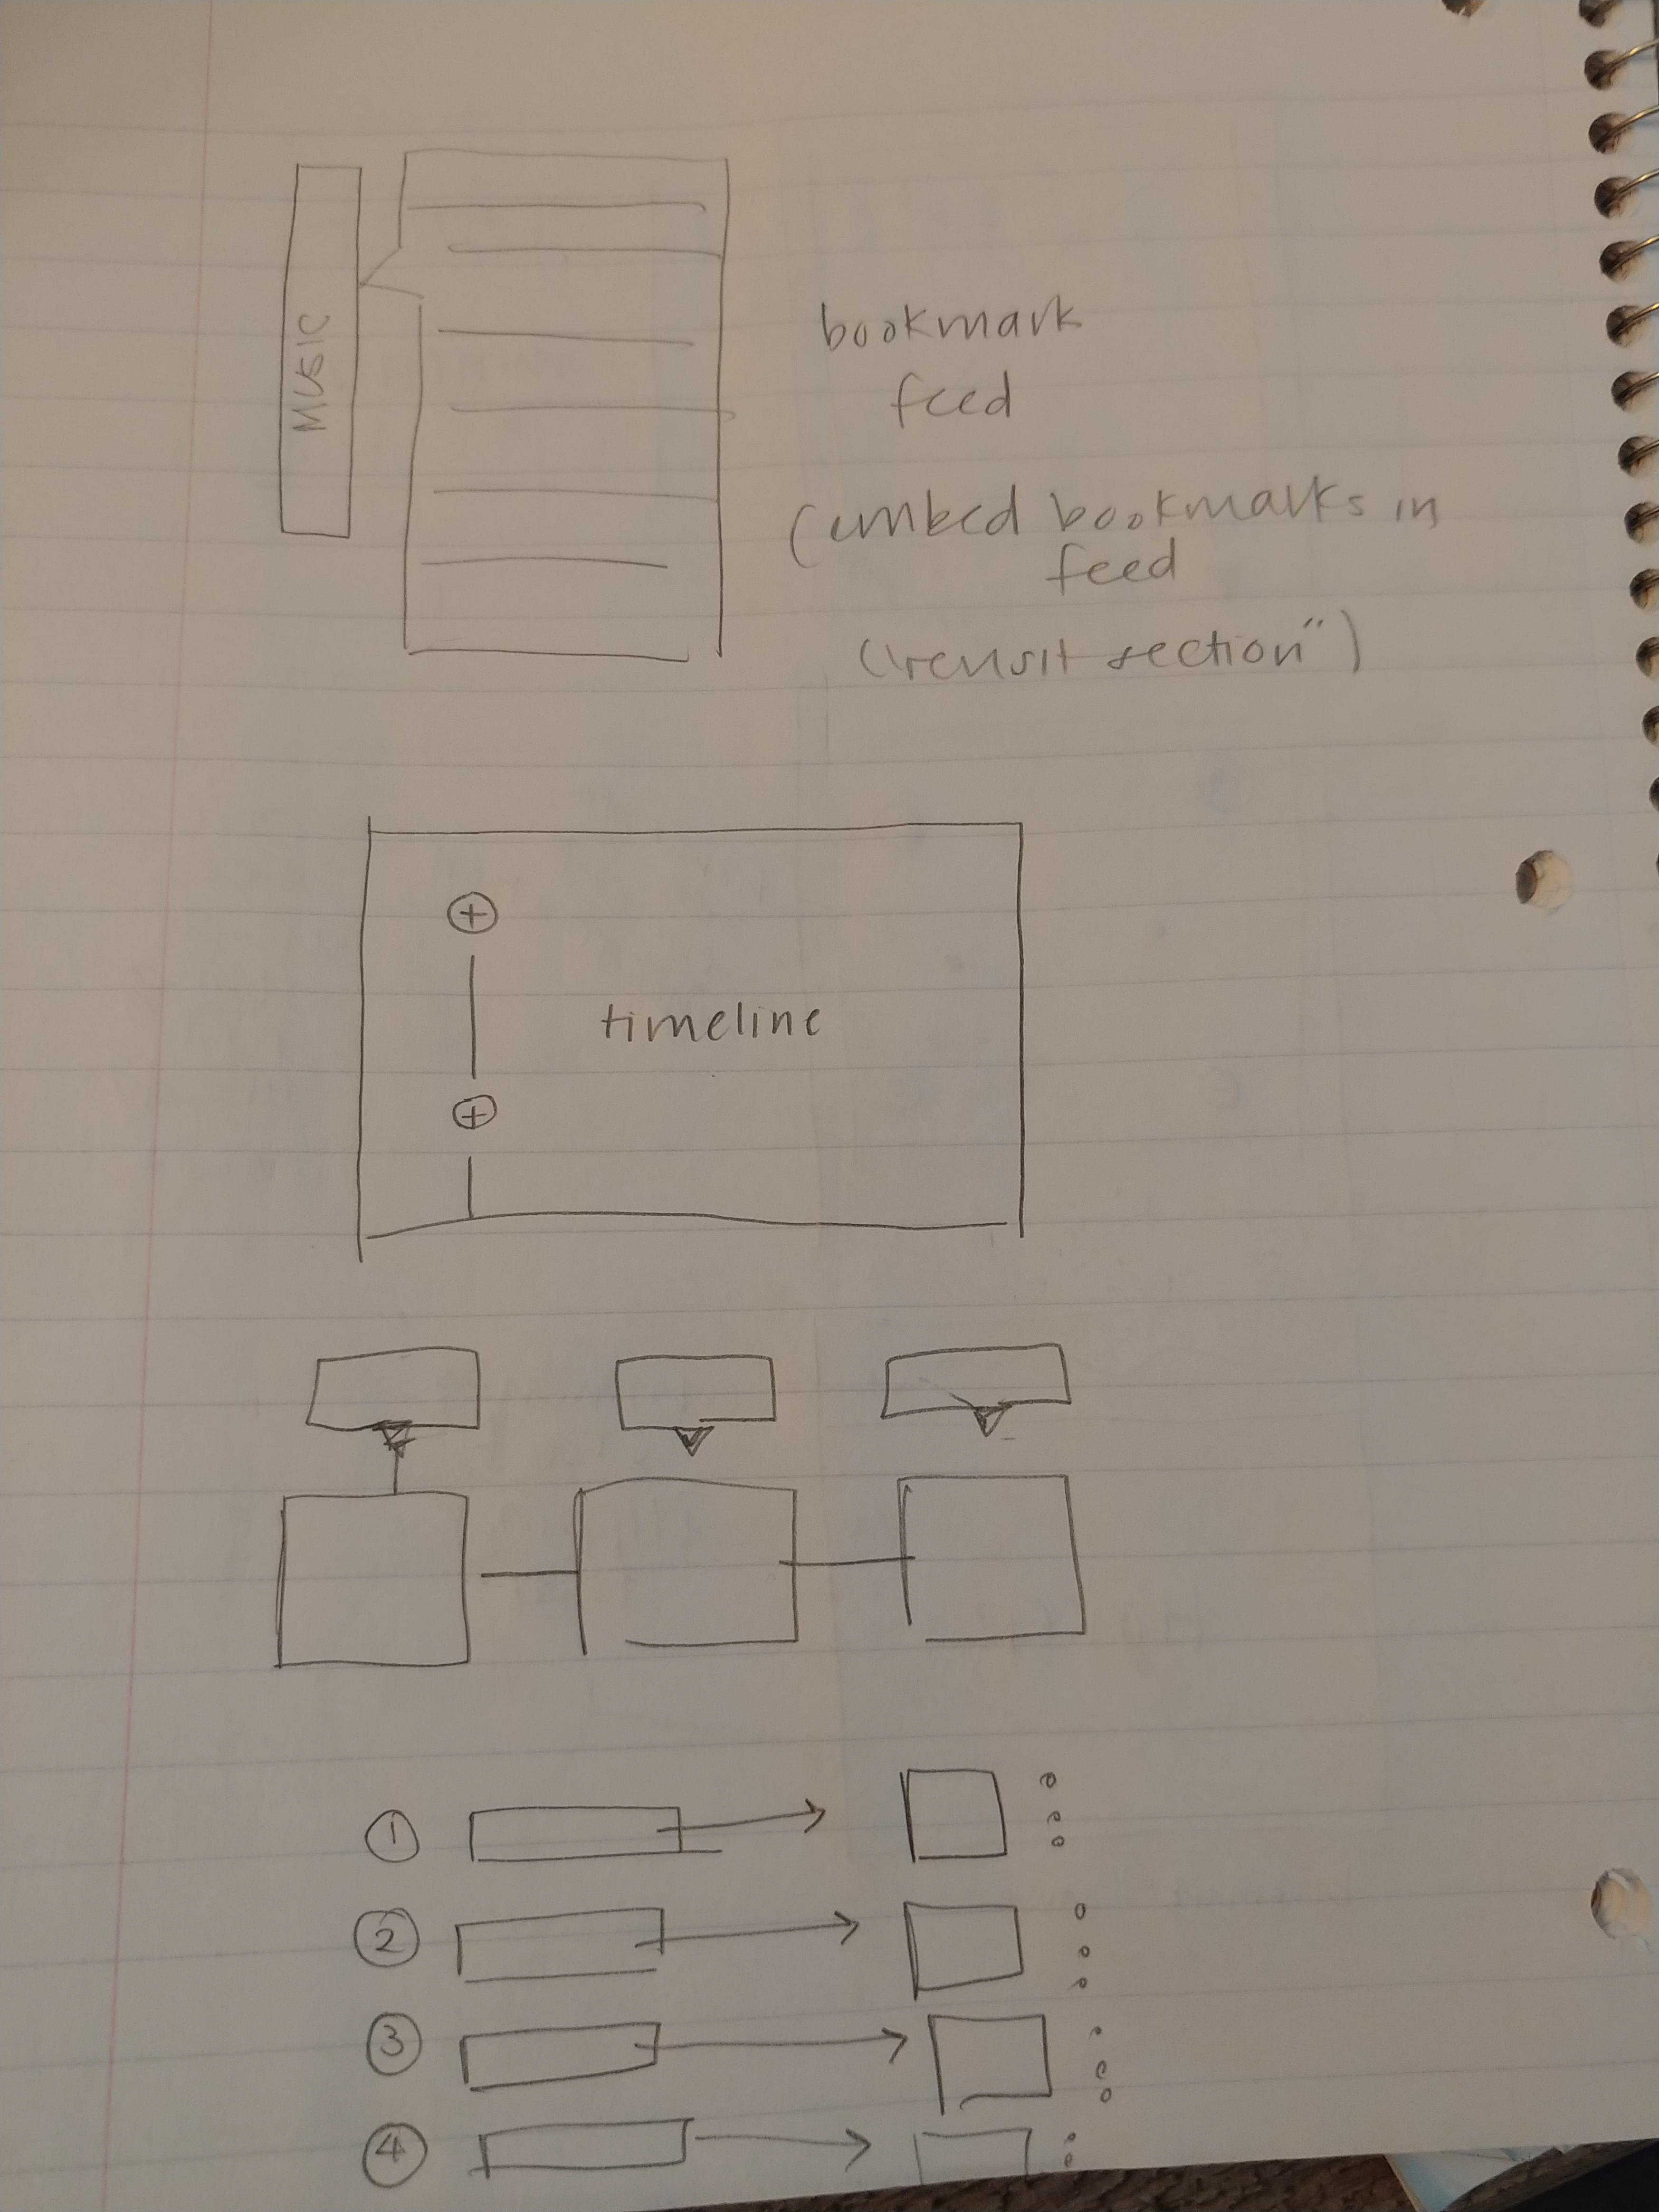 MUSIC
bookmark
feed
(embed bookmarks in
feed
("revisit section")
timeline
1
2
3
4